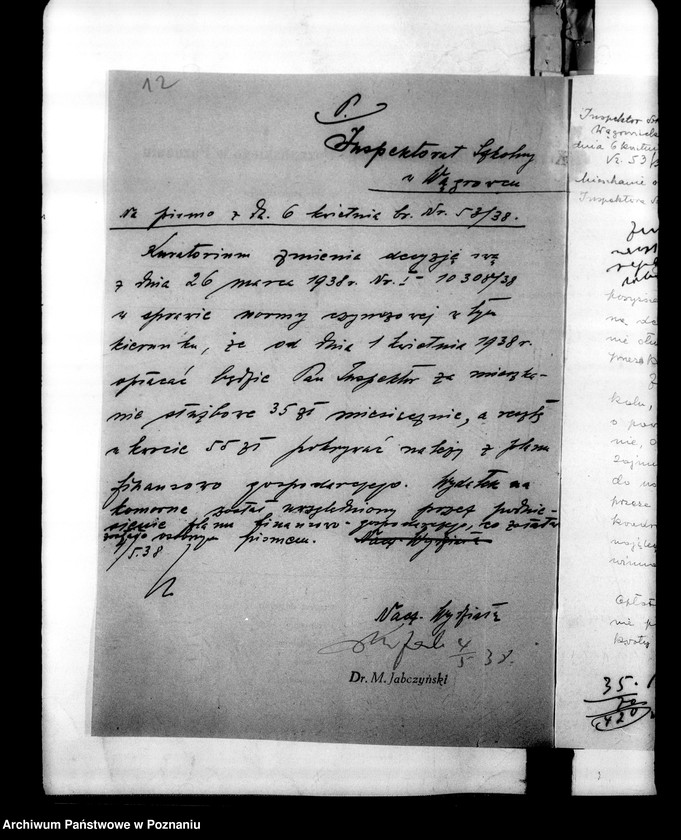 12
P.
Inspektorat Szkolny
w Wągrowcu
Na pismo z dn. 6 kwietnia br. Nr. 53/38.
Kuratorium zmienia decyzję swą
z dnia 26 marca 1938 r. Nr. I - 10308/38
w sprawie normy czynszowej w tym
kierunku, że od dnia 1 kwietnia 1938 r.
opłacać będzie Pan Inspektor za mieszka-
nie służbowe 35 zł miesięcznie, a resztę
w kwocie 55 zł pokrywać należy z planu
finansowo gospodarczego. Wydatek na
komorne został uwzględniony przez podnie-
sienie planu finansowo-gospodarczego, co
osobnym pismem. Nacz. Wydziału
/5.38
Nacz. Wydziału
4/5 38.
Dr. M. Jabczyński
Inspektor
dnia 6
Nr. 53/
Mieszkanie
Inspektora
na
nie
kolu,
o
nie,
do
przez
nie
kwoty
35.
420
Archiwum Państwowe w Poznaniu